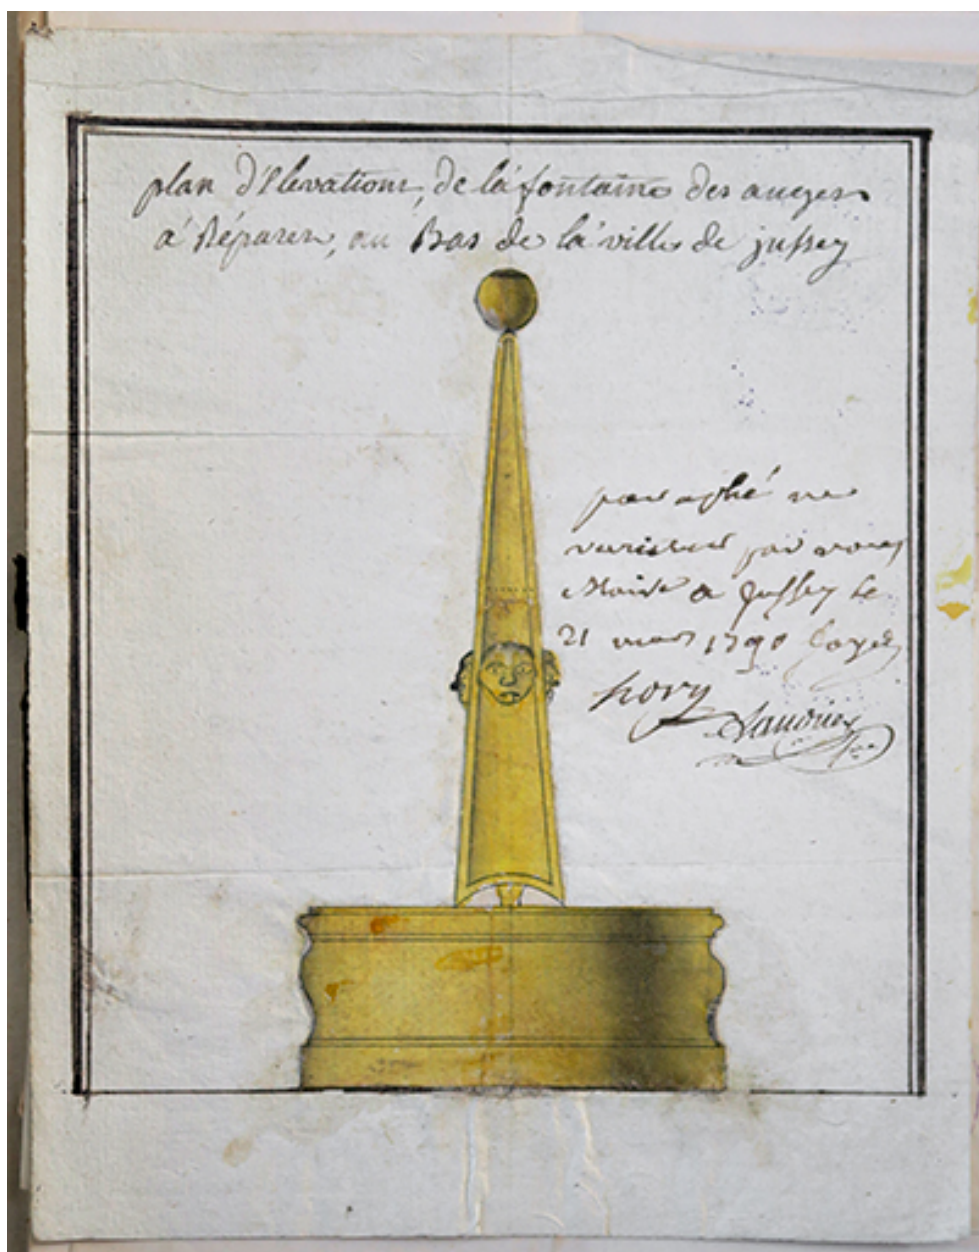 plan d'Elevations, de la fontaine des auges
à Réparer, au Bas de la ville de jussey
paraphé ne
varietur par nous
Maire a Jussey le
21 1790